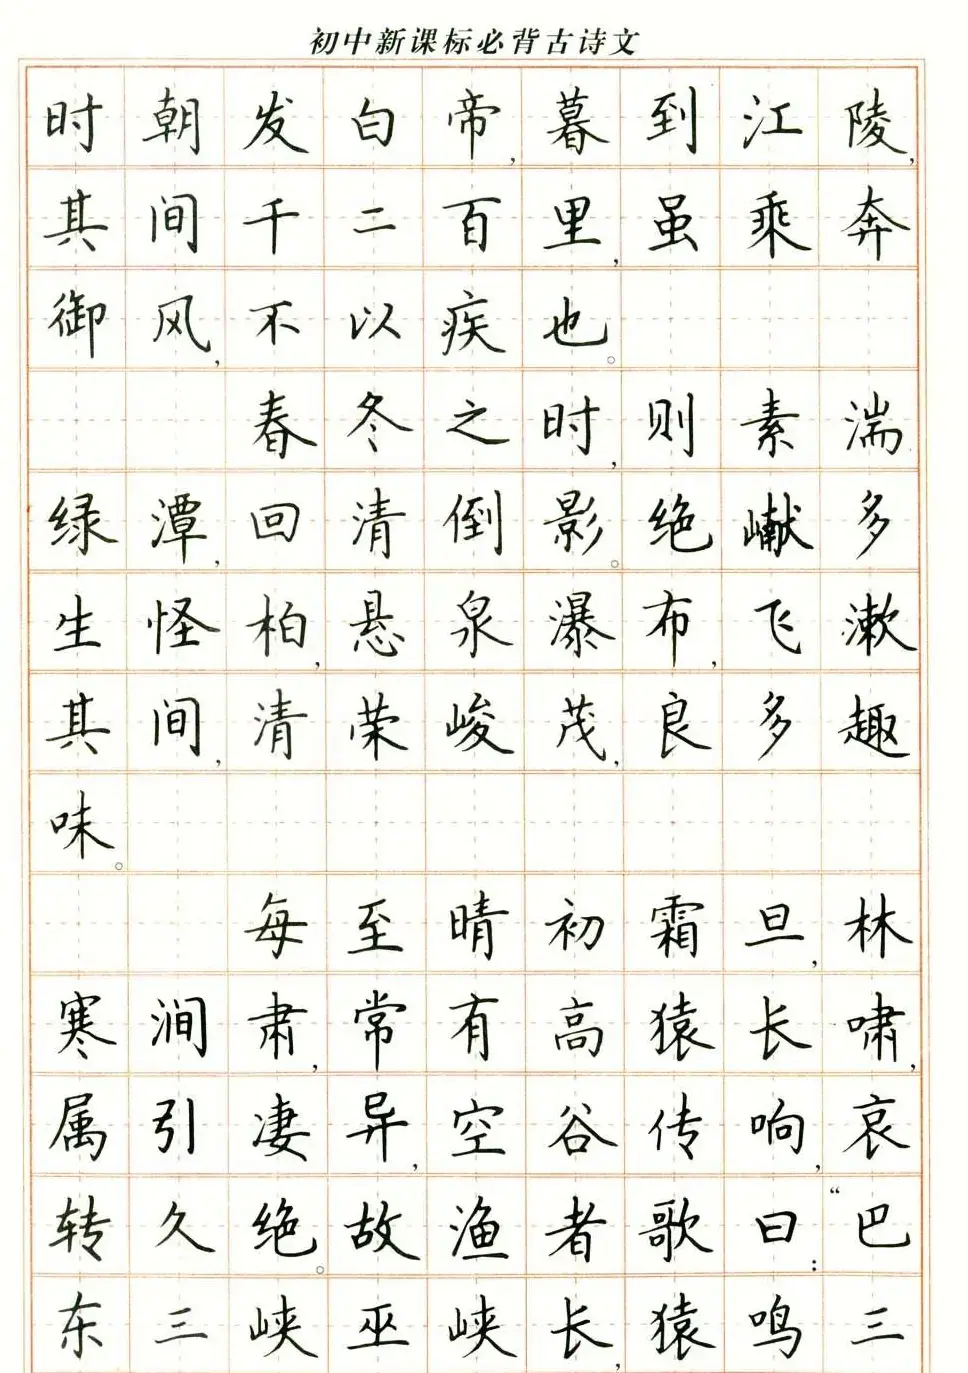 初中新课标必背古诗文
时朝发白帝,暮到江陵,
其间千二百里,虽乘奔
御风,不以疾也。
春冬之时,则素湍
绿潭,回清倒影。绝巘多
生怪柏,悬泉瀑布,飞漱
其间,清荣峻茂,良多趣
味。
每至晴初霜旦,林
寒涧肃,常有高猿长啸,
属引凄异,空谷传响,哀
转久绝。故渔者歌曰:“巴
东三峡巫峡长,猿鸣三